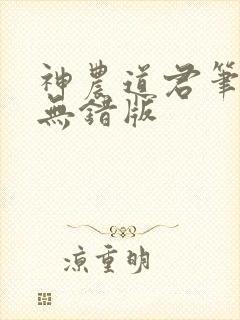 神農道君筆
無錯版
涼重明